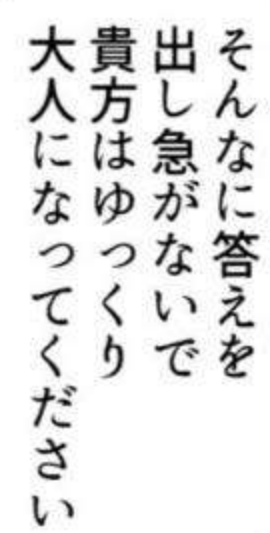 そんなに答えを
出し急がないで
貴方はゆっくり
大人になってください